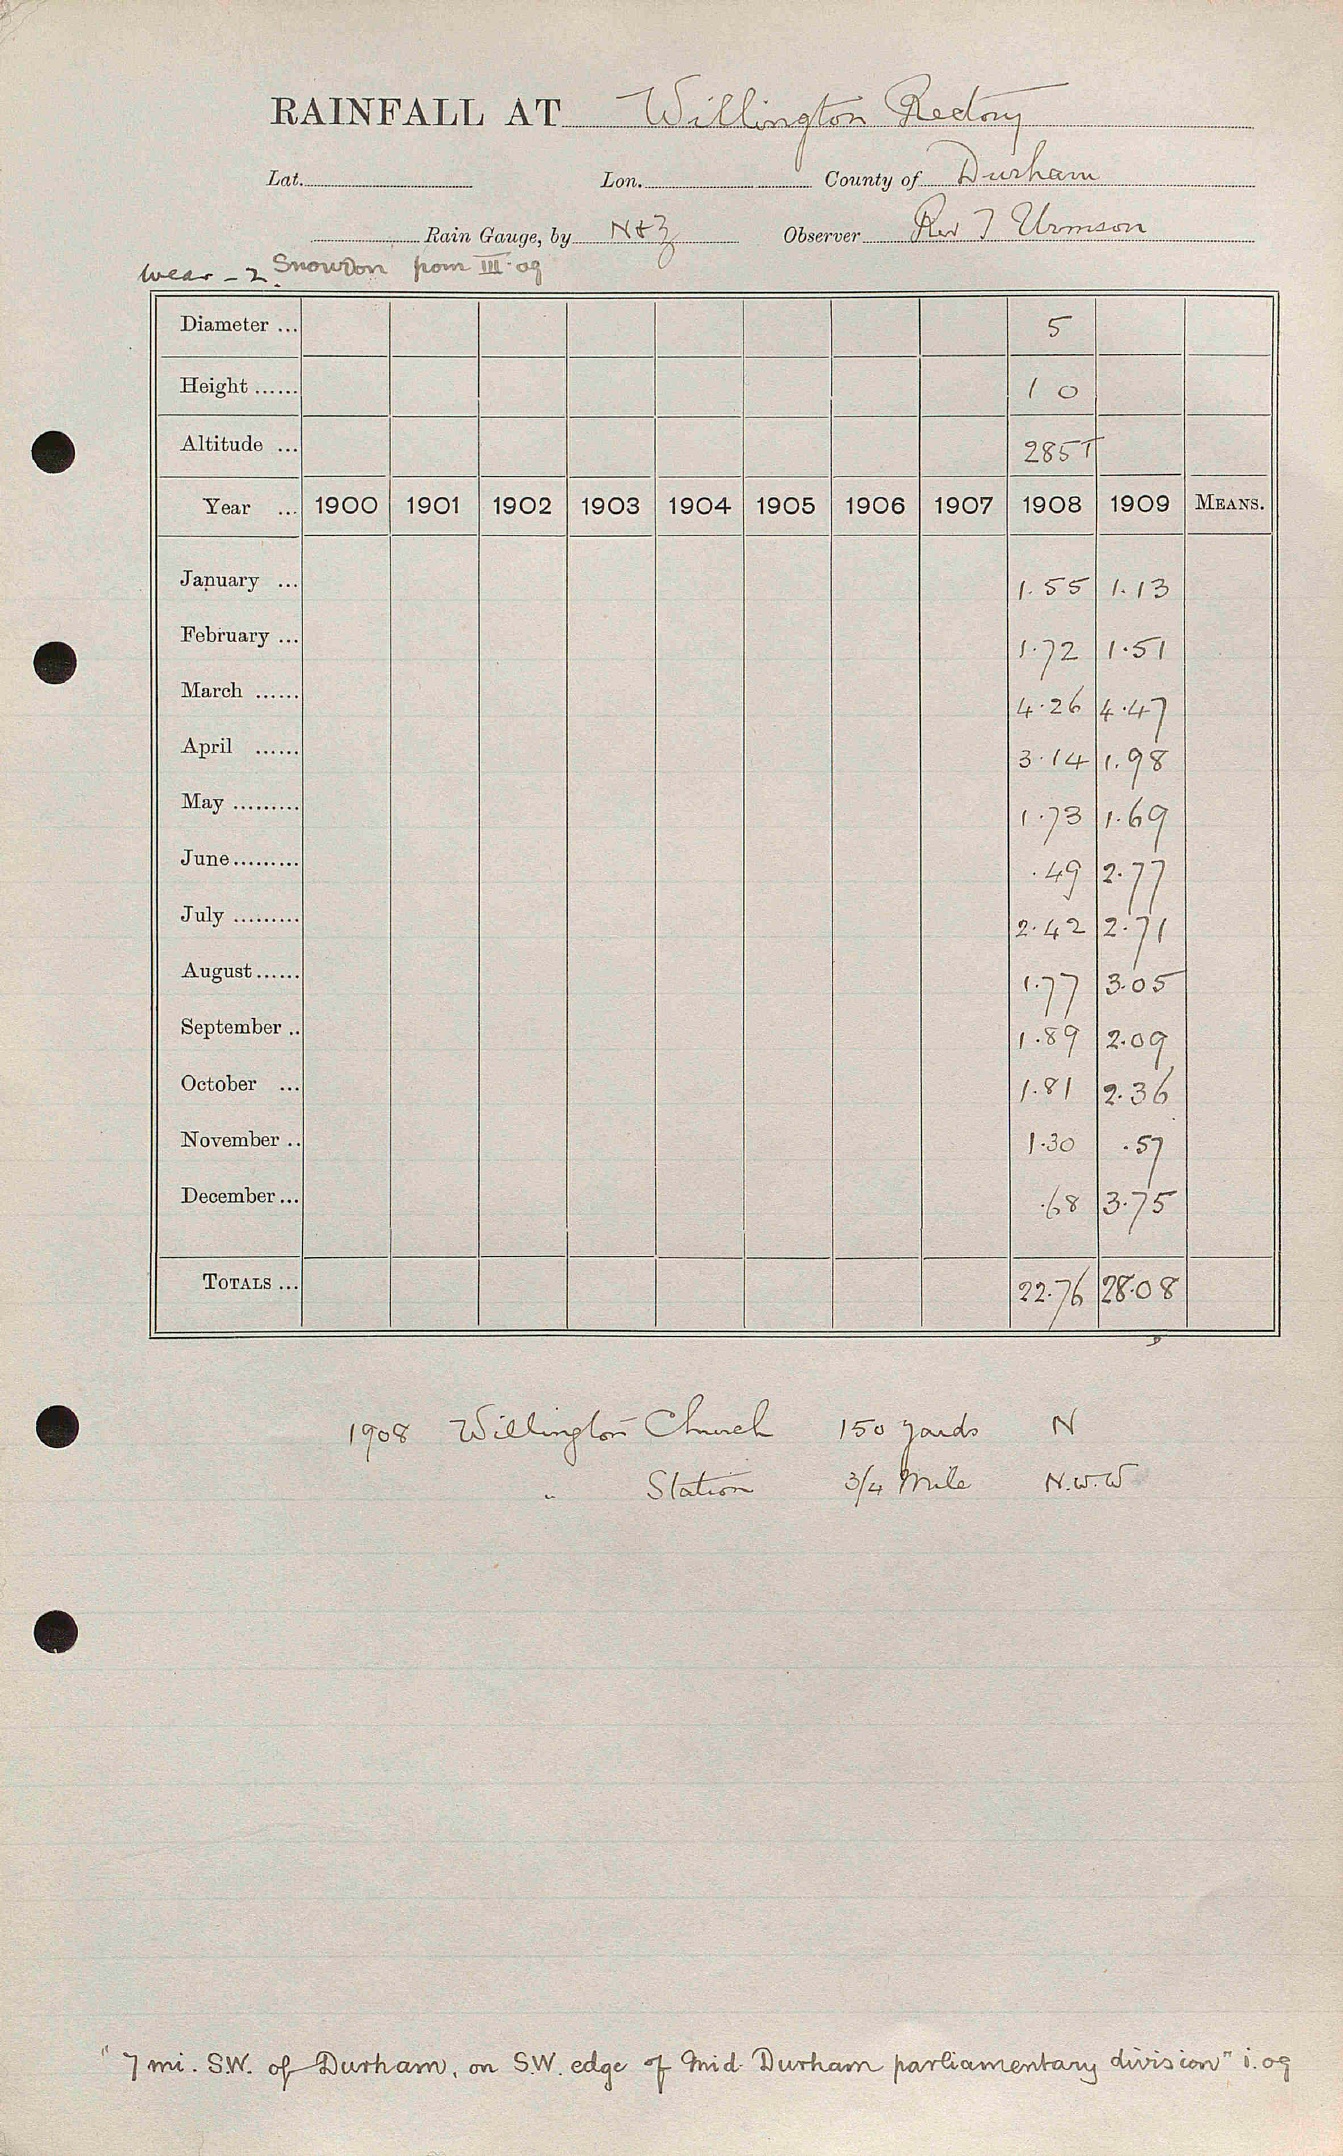 RAINFALL AT Willington Rectory
Lat. Lon. County of Durham
Rain Gauge, by N & Z Observer Rev T Urmson
Wear - 2 Snowdon from III. 09
Diameter ... 5
Height ...... 1 0
Altitude ... 285T
Year ... 1900 1901 1902 1903 1904 1905 1906 1907 1908 1909 MEANS.
January ... 1.55 1.13
February ... 1.72 1.51
March ...... 4.26 4.47
April ...... 3.14 1.98
May ......... 1.73 1.69
June ......... .49 2.77
July ......... 2.42 2.71
August ...... 1.77 3.05
September .. 1.89 2.09
October ... 1.81 2.36
November .. 1.30 .57
December ... .68 3.75
TOTALS ... 22.76 28.08
1908 Willington Church 150 yards N
" Station 3/4 Mile N.W.W
"7 mi. S.W. of Durham, on S.W. edge of Mid Durham parliamentary division" i.09